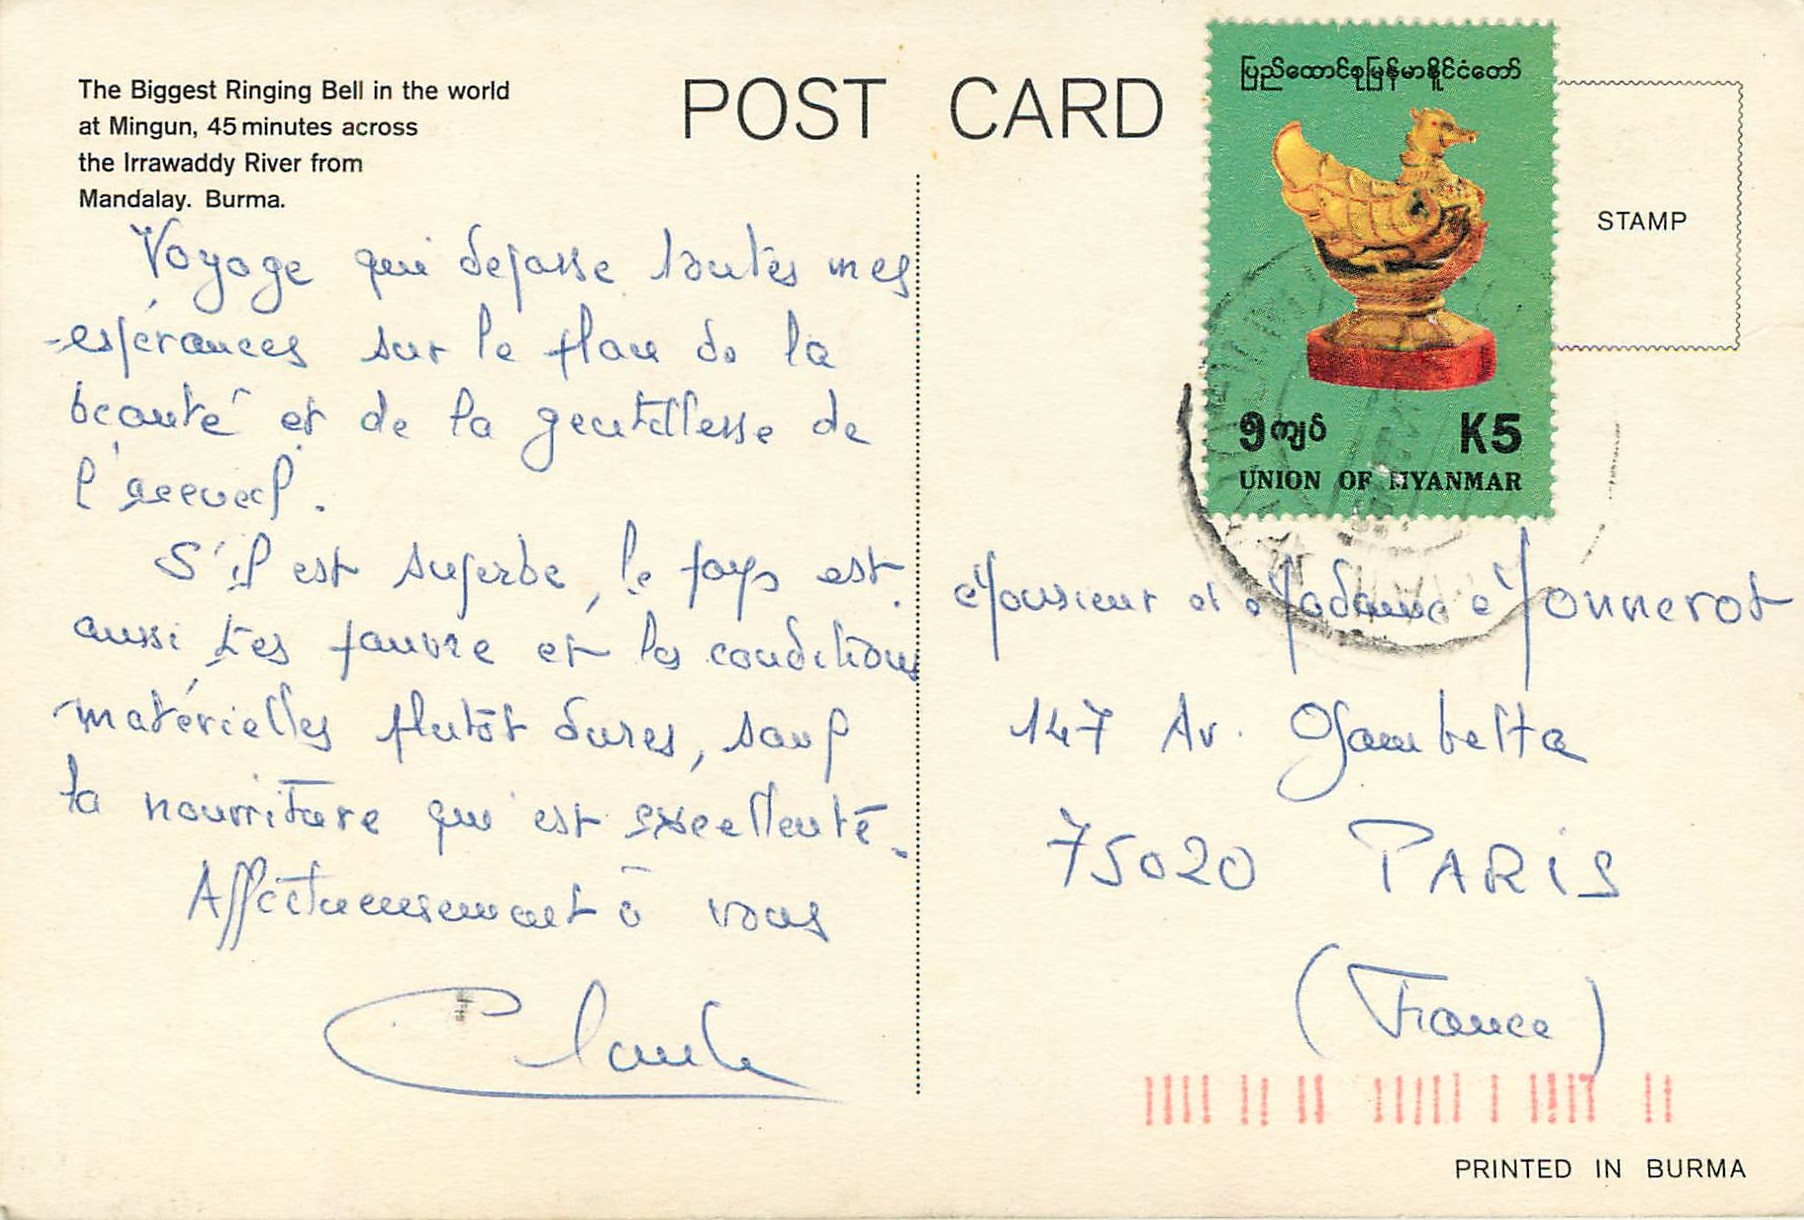 The Biggest Ringing Bell in the world
at Mingun, 45 minutes across
the Irrawaddy River from
Mandalay. Burma.
POST CARD
Voyage qui dépasse toutes mes
espérances sur le plan de la
beauté et de la gentillesse de
l'accueil.
S'il est superbe, le pays est
aussi très pauvre et les conditions
matérielles plutôt dures, sauf
la nourriture qui est excellente.
Affectueusement à vous
Claude
ပြည်ထောင်စုမြန်မာနိုင်ငံတော်
၅ကျပ် K5
UNION OF MYANMAR
STAMP
Monsieur et Madame Monnerot
147 Av. Gambetta
75020 PARIS
(France)
PRINTED IN BURMA